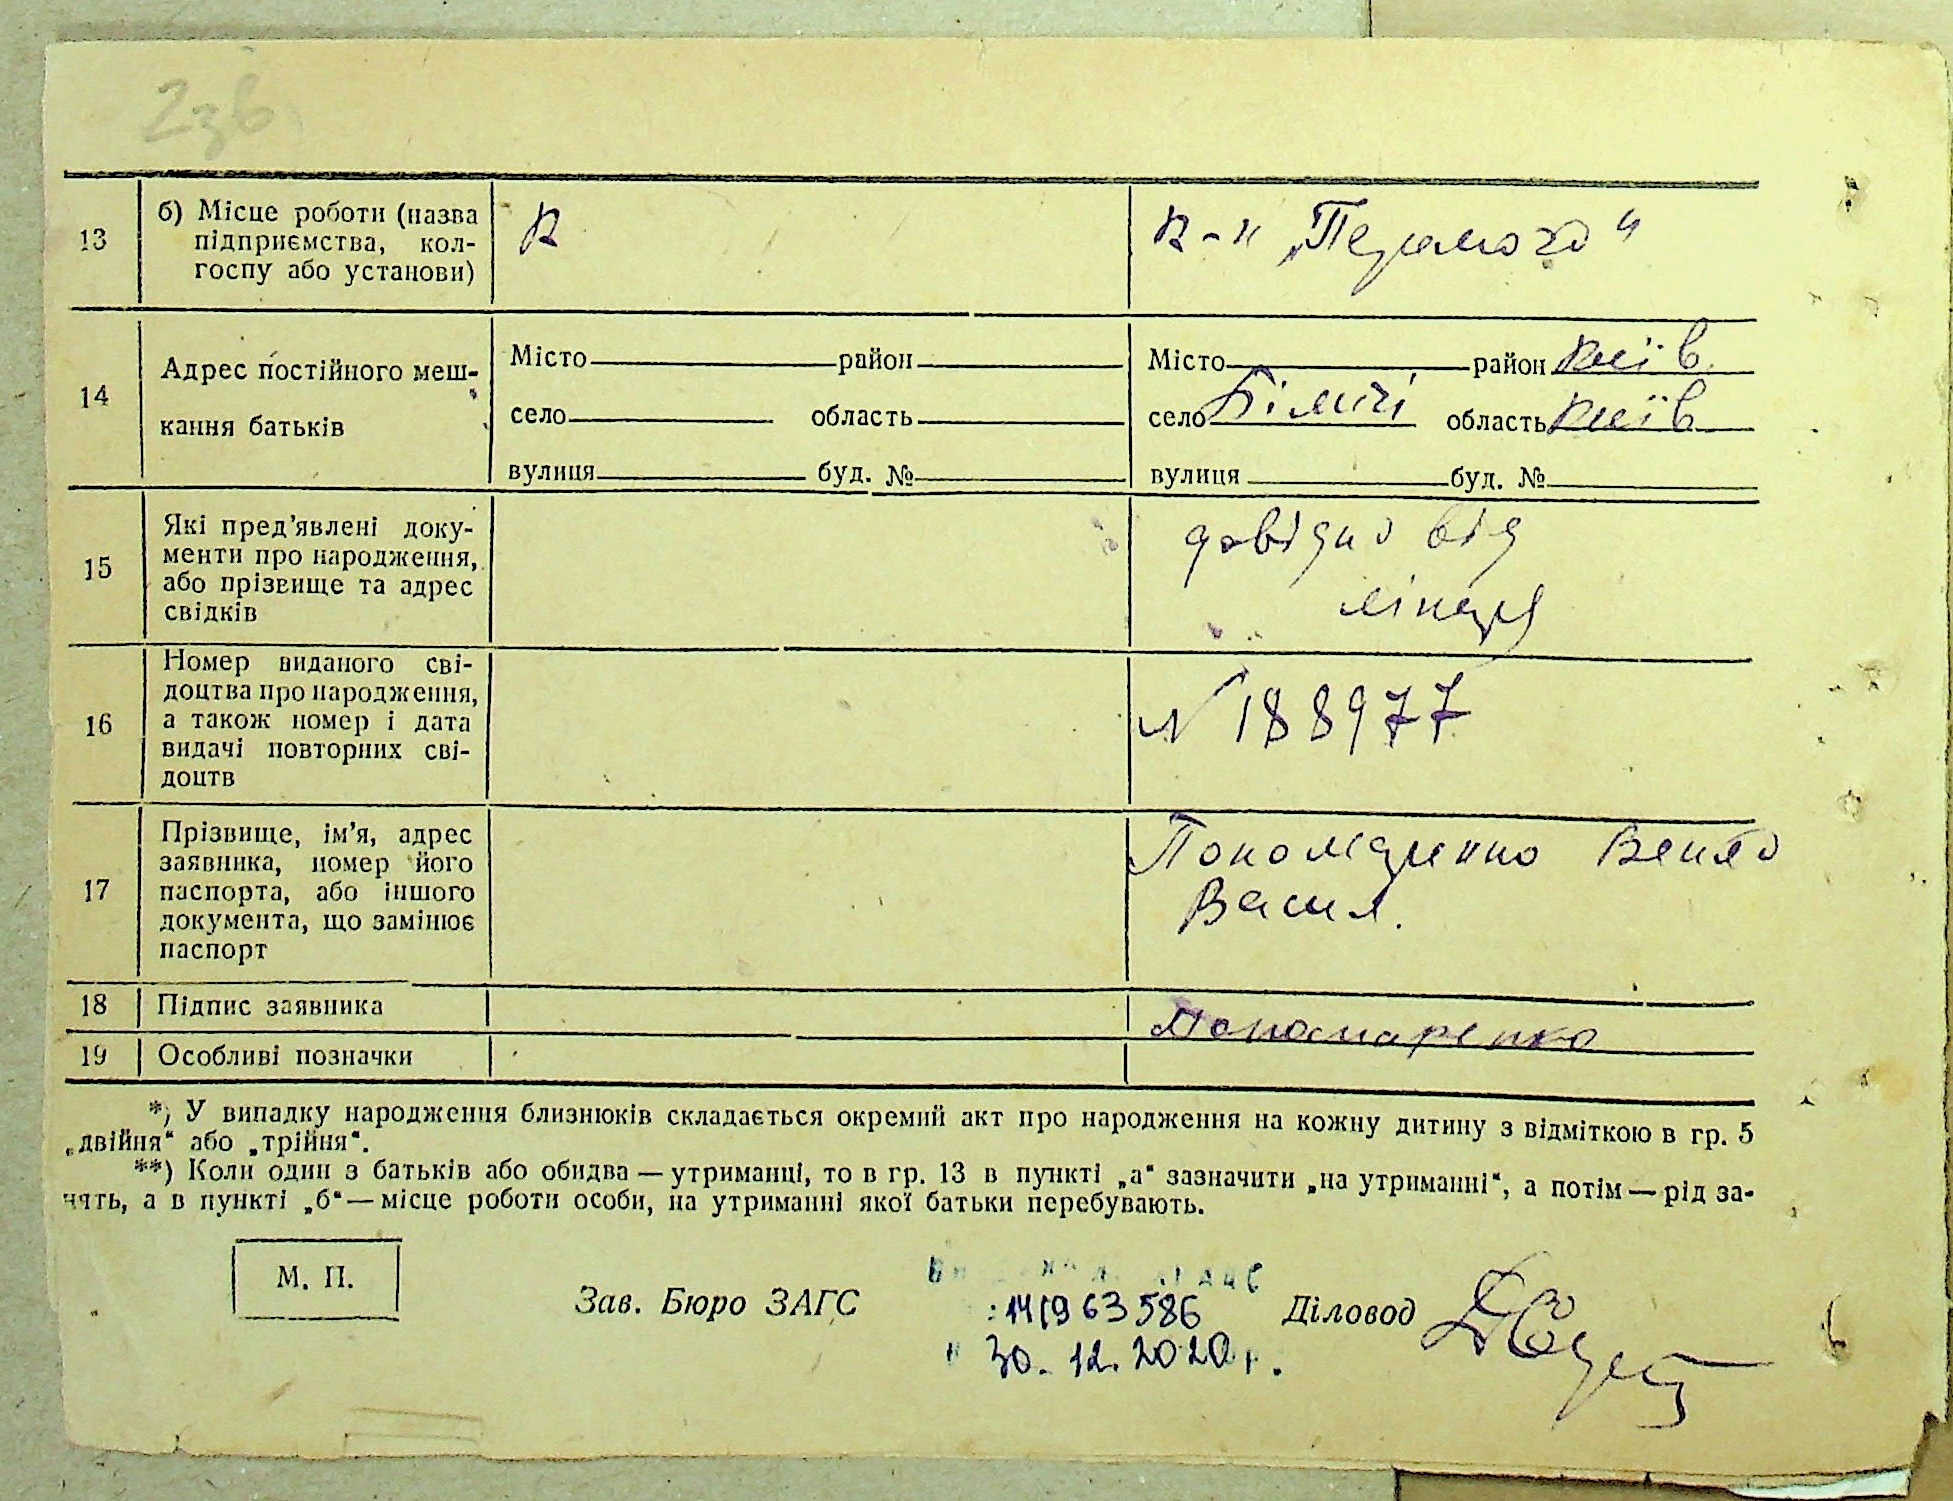 23в
13
б) Місце роботи (назва
підприємства, кол-
госпу або установи)
К
К-п „Перемога“
14
Адрес постійного меш-
кання батьків
Місто район
село область
вулиця буд. №
Місто район Київ.
село Біличі область Київ
вулиця буд. №
15
Які пред’явлені доку-
менти про народження,
або прізвище та адрес
свідків
довідка від
лікаря
16
Номер виданого сві-
доцтва про народження,
а також номер і дата
видачі повторних сві-
доцтв
N 188977
17
Прізвище, ім’я, адрес
заявника, номер його
паспорта, або іншого
документа, що замінює
паспорт
Пономаренко
Васил.
18
Підпис заявника
Пономаренко
19
Особливі позначки
*) У випадку народження близнюків складається окремий акт про народження на кожну дитину з відміткою в гр. 5
„двійня“ або „трійня“.
**) Коли один з батьків або обидва — утриманці, то в гр. 13 в пункті „а“ зазначити „на утриманні“, а потім — рід за-
нять, а в пункті „б“ — місце роботи особи, на утриманні якої батьки перебувають.
М. П.
Зав. Бюро ЗАГС
Діловод
63586
30.12.2020 р.